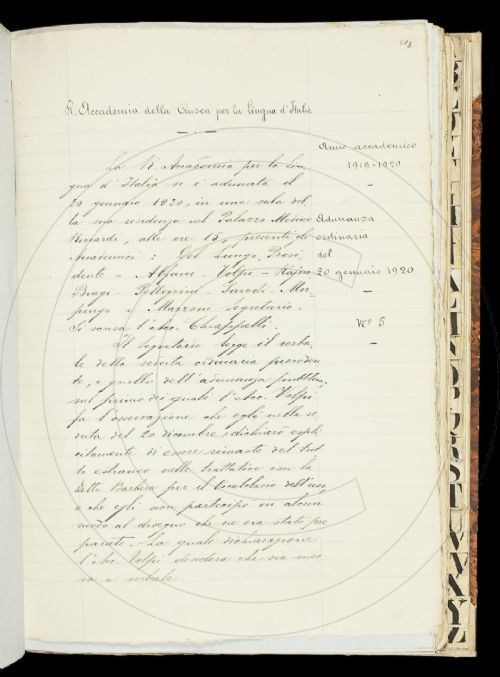 R. Accademia della Crusca per la lingua d'Italia
Anno accademico
1919-1920
La R. Accademia per la lin-
gua d'Italia si è adunata il
20 gennaio 1920, in una sala del-
la sua residenza nel Palazzo Mediceo
Riccardi, alle ore 15, presenti gli
Accademici: Del Lungo, Presi-
dente - Alfani - Volpi - Rajna
Biagi - Pellegrini - Parodi - Mor-
purgo e Mazzoni segretario.
Si scusa l'Acc. Chiappelli.
Adunanza
ordinaria
del
20 gennaio 1920
N° 5
Il segretario legge il verba-
le della seduta ordinaria preceden-
te, e quello dell'adunanza pubblica,
sul primo dei quali l'Acc. Volpi
fa l'osservazione che egli nella se-
duta del 20 dicembre, dichiarò espli-
citamente di essere rimasto del tut-
to estraneo nelle trattative con la
Ditta Barbèra per il Vocabolario dell'uso,
e che egli non partecipò in alcun
modo al disegno che ne era stato pre-
parato. La quale dichiarazione
l'Acc. Volpi desidera che sia mes-
sa a verbale.